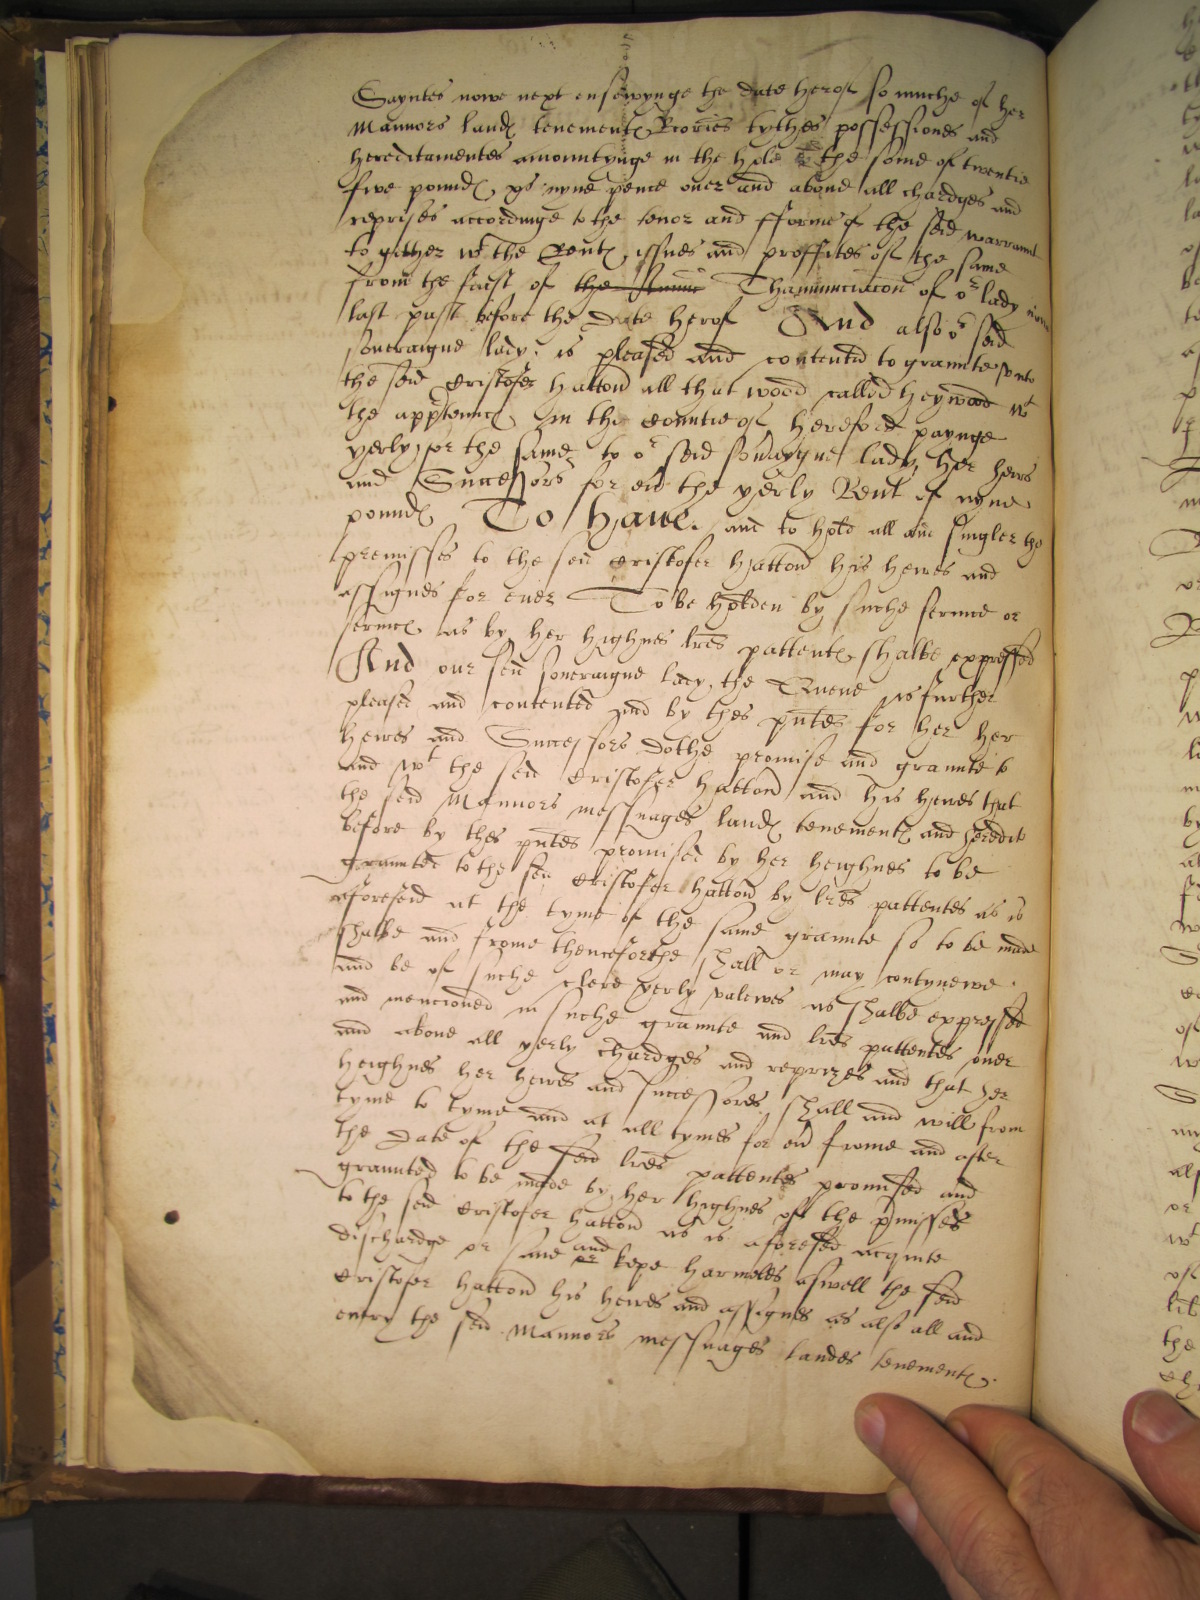 Sayntes nowe next ensewynge the date herof so muche of her
Mannors landes tenementes Rectories tythes possessiones and
hereditamentes amountynge in the hole to the some of twentie
five poundes xs nyne pence over and above all chardges and
reprises accordinge to the tenor and fforme of the seid warrannt
to gither wt the Rentes issues and proffites of the same
from the feast of the Annunc Thannunciacon of or lady
last past before the Date herof And also or seid
soveraigne lady is pleased and contented to graunte unto
the seid Cristofer Hatton all that wood called Heywood wt
the apptennces in the Countie of Hereford payinge
yerly for the same to or seid soveraygne lady her heirs
and Successors for evr the yerly Rent of nyne
poundes To Have and to hold all and singler the
premisses to the seid Cristofer Hatton his heires and
assignes for ever To be holden by suche service or
services as by her highnes lres pattentes shalbe expressed
And our seid soveraigne lady the Quene is further
pleased and contented and by thes pntes for her her
heires and Successors dothe promise and graunte to
and wt the seid Cristofer Hatton and his heires that
the seid Mannors messuages landes tenementes and heredit
before by thes pntes promised by her heighnes to be
graunted to the seid Cristofer Hatton by lres pattentes as is
aforeseid at the tyme of the same graunte so to be made
shalbe and frome thenceforthe shall or may contynewe
and be of suche clere yerly valewes as shalbe expressed
and mencioned in suche graunte and lres pattentes over
and above all yerly chardges and reprizes and that her
heighnes her heires and successores shall and will from
tyme to tyme and at all tymes for evr frome and after
the Date of the seid lres pattentes promised and
graunted to be made by her highnes of the pmisses
to the seid Cristofer Hatton as is aforesed acquite
dischardge or save and or kepe harmeles aswell the seid
Cristofer Hatton his heires and assignes as also all and
every the seid Mannors messuages landes tenementes